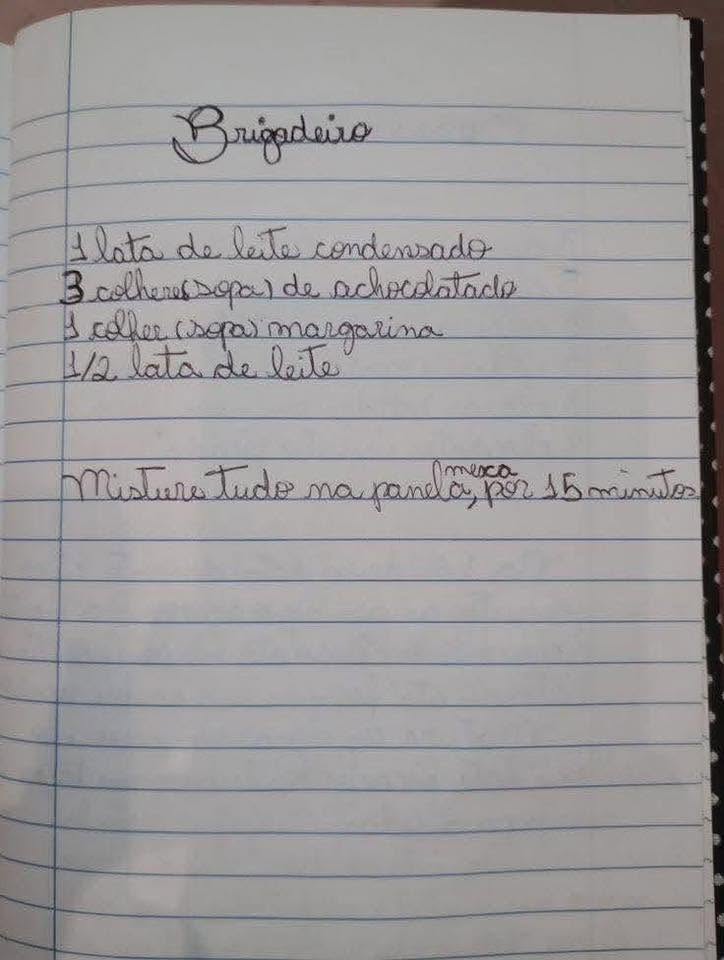 Brigadeiro
1 lata de leite condensado
3 colheres (sopa) de achocolatado
1 colher (sopa) margarina
1/2 lata de leite
Misture tudo na panela, mexa por 15 minutos